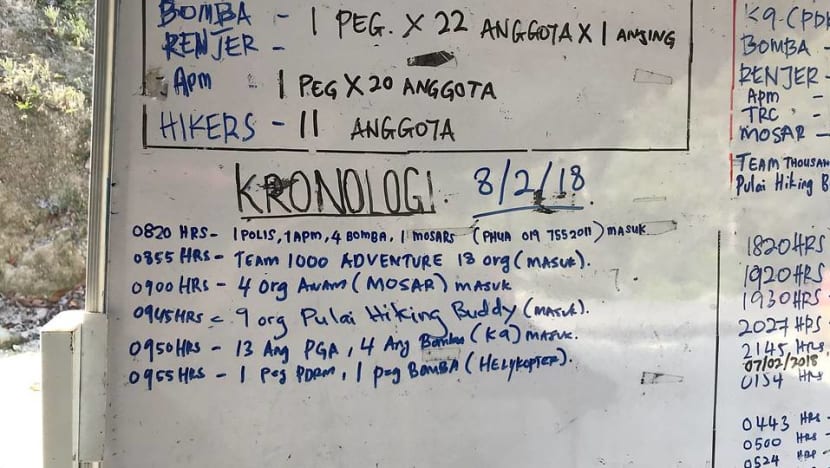 BOMBA - 1 PEG. X 22 ANGGOTA X 1 ANJING
RENJER -
APM - 1 PEG X 20 ANGGOTA
HIKERS - 11 ANGGOTA
KRONOLOGI 8/2/18.
0820 HRS - 1 POLIS, 1 APM, 4 BOMBA, 1 MOSARS (PHUA 019 7552011) MASUK
0855 HRS - TEAM 1000 ADVENTURE 18 org (MASUK).
0900 HRS - 4 org AWAM (MOSAR) MASUK
0945 HRS = 9 org Pulai Hiking Buddy (MASUK).
0950 HRS - 13 Ang PGA, 4 Ang Bomba (K9) MASUK.
0955 HRS - 1 Peg PDRM, 1 peg BOMBA (HELYKOPTER).
K9-(PDR
BOMBA -
RENJER -
APM -
TRC -
MOSAR -
TEAM THOUSAN
Pulai Hiking B
1820 HRS
1920 HRS
1930 HRS
2027 HRS
2145 HRS
07/02/2018
0154 HRS
0443 HRS -
0500 HRS -
0524 HRS -